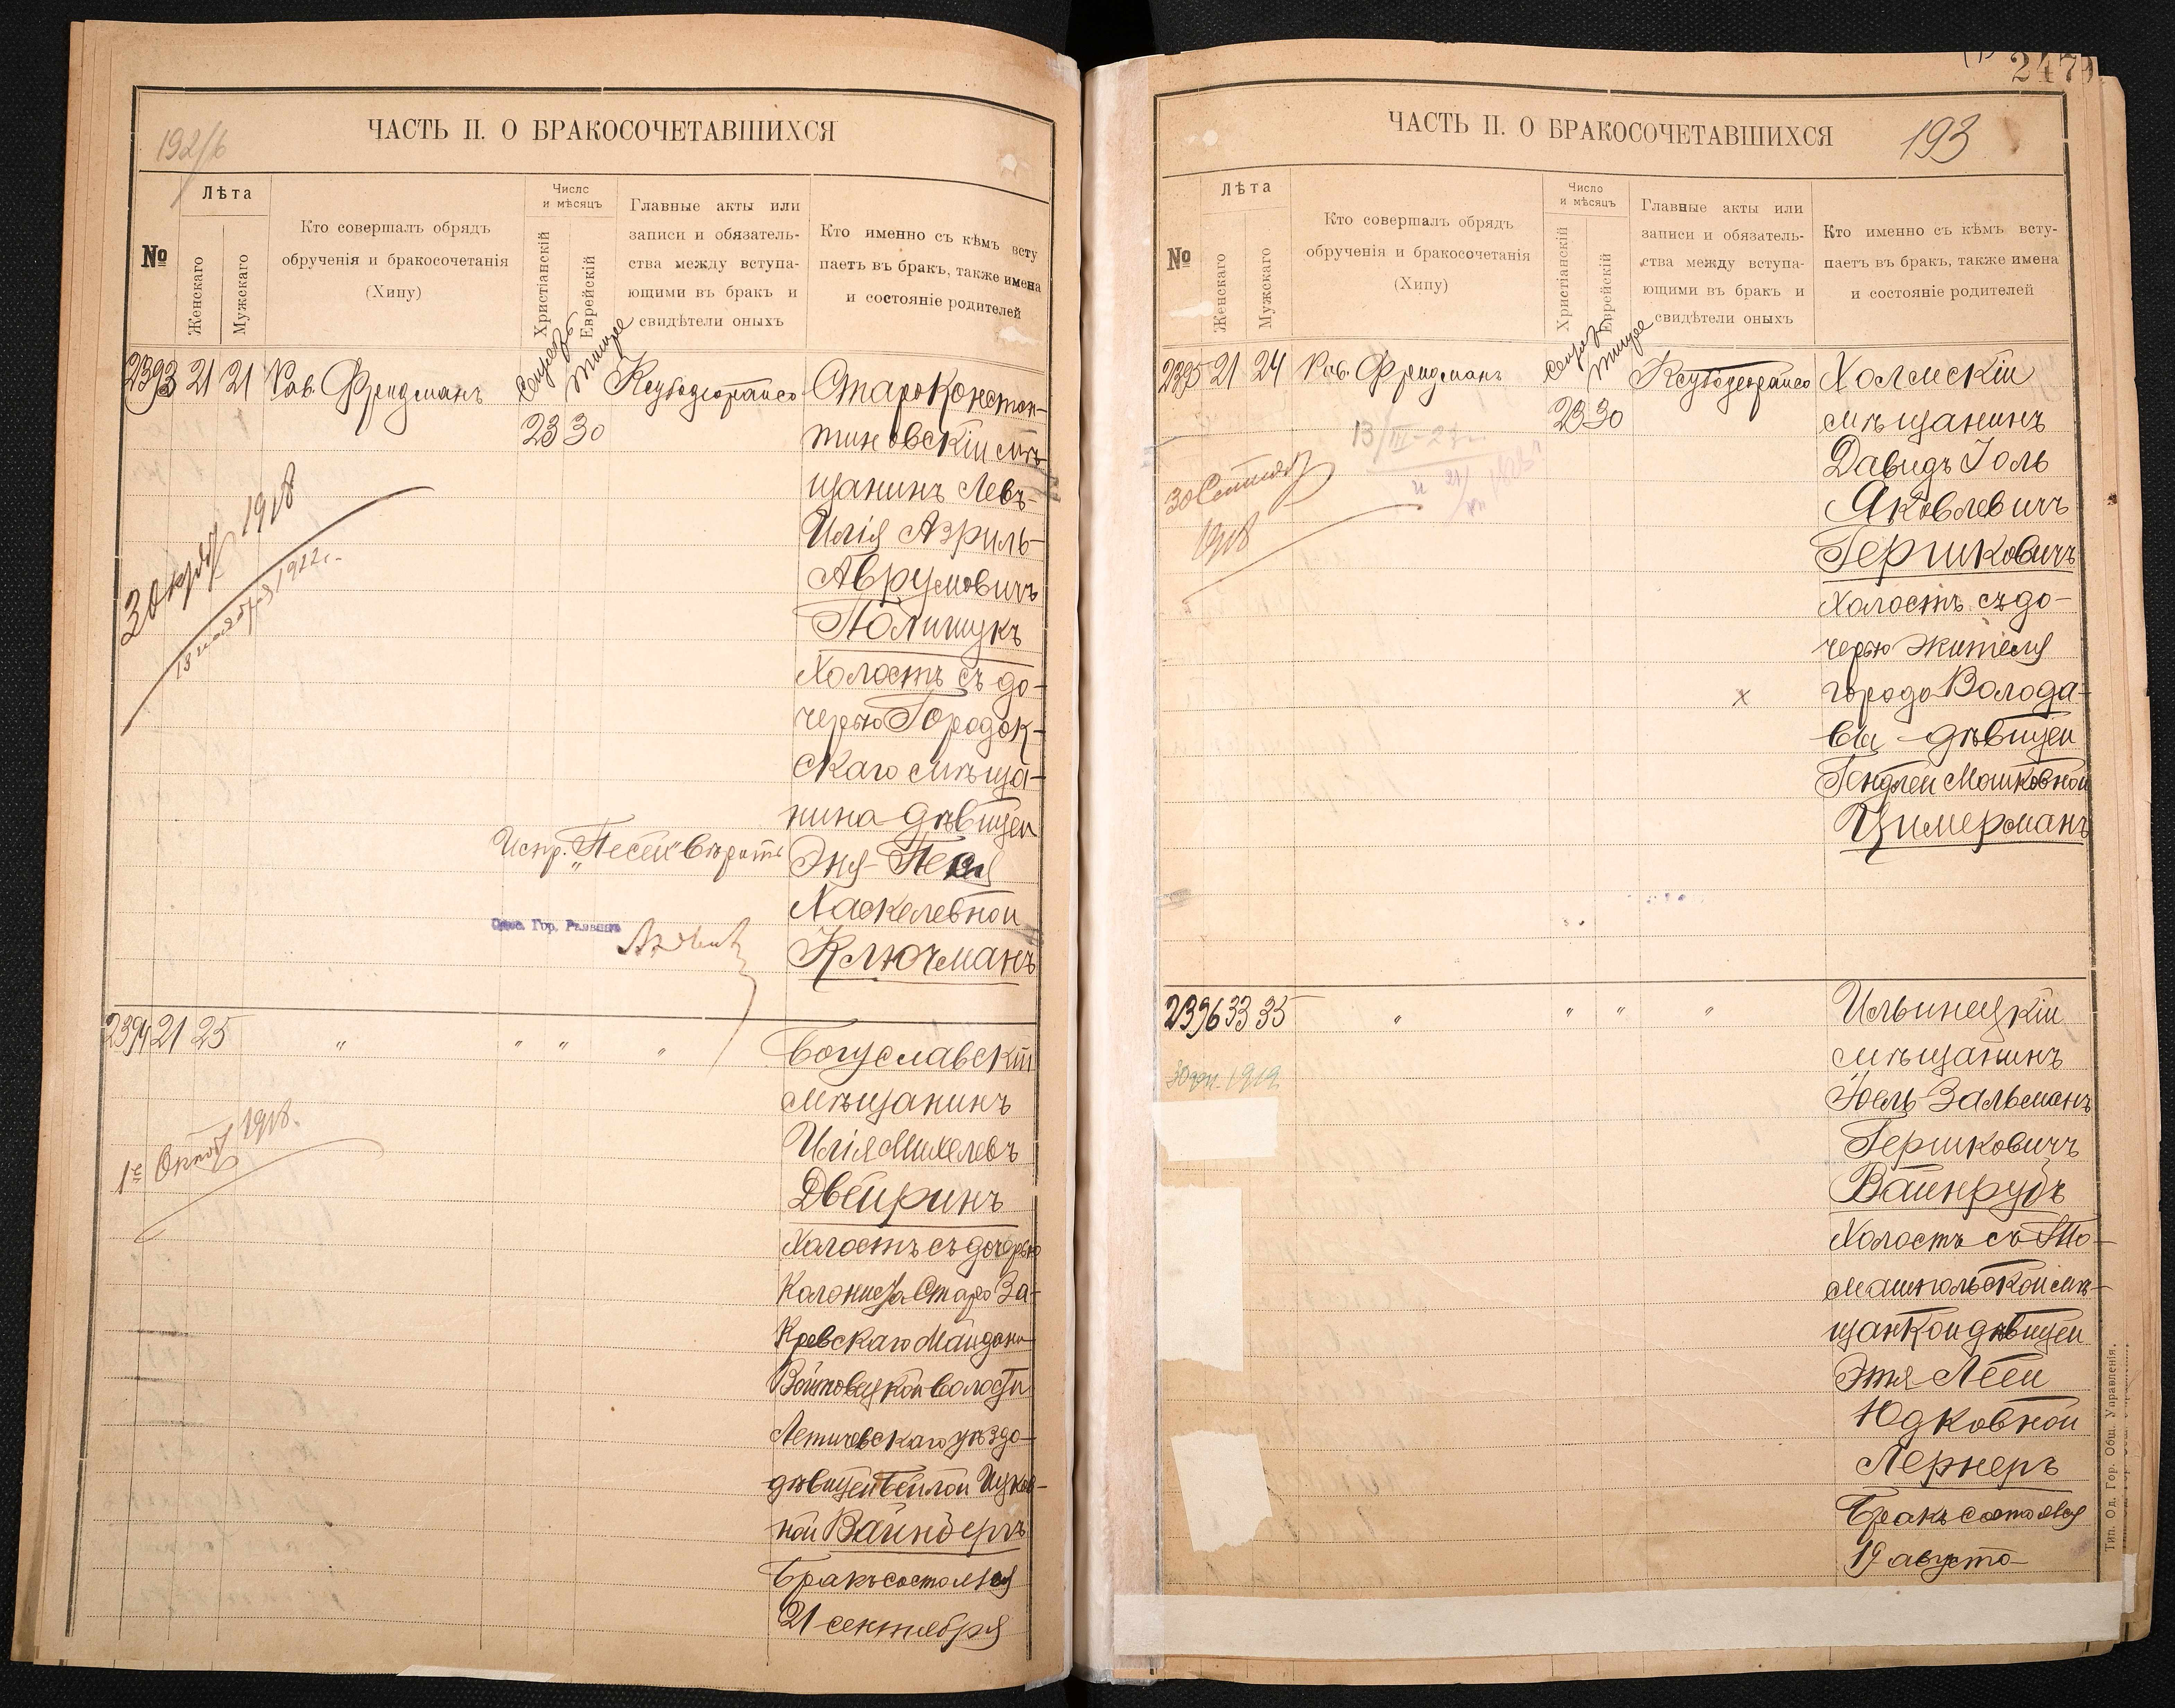 192/б
ЧАСТЬ II. О БРАКОСОЧЕТАВШИХСЯ
№
Лѣта
Женскаго
Мужскаго
Кто совершалъ обрядъ
обрученія и бракосочетанія
(Хипу)
Число
и мѣсяцъ
Христіанскій
Еврейскій
Главные акты или
записи и обязатель-
ства между вступа-
ющими въ бракъ и
свидѣтели оныхъ
Кто именно съ кѣмъ всту
паетъ въ бракъ, также имена
и состояніе родителей
2393 21 21 Рав. Фридманъ
Тишре
23 30
СтароКонстан-
тиновскій мѣ-
щанинъ Левъ-
Илія Азриль-
Аврумовичъ
Полищукъ
Холостъ съ до-
черью Городок-
скаго мѣща-
нина дѣвицей
Эня-Песей
Хаскелевной
Ключманъ
1918
1922г.
Испр. "Песей" вѣрить
Одес. Гор. Раввинъ
2394 21 25 " " " "
Богуславскій
мѣщанинъ
Илія Михелевъ
Двейринъ
Холостъ съ дочерью
Колониста Старо За-
кревскаго Майдана
Войтовецкой Волости
Летичевскаго уѣзда
дѣвицей Бейлой Ицков-
ной Вайнбергъ
Бракъ состоялся
21 сентября
1е Октяб 1918.
2479
193
ЧАСТЬ II. О БРАКОСОЧЕТАВШИХСЯ
№
Лѣта
Женскаго
Мужскаго
Кто совершалъ обрядъ
обрученія и бракосочетанія
(Хипу)
Число
и мѣсяцъ
Христіанскій
Еврейскій
Главные акты или
записи и обязатель-
ства между вступа-
ющими въ бракъ и
свидѣтели оныхъ
Кто именно съ кѣмъ всту-
паетъ въ бракъ, также имена
и состояніе родителей
2395 21 24 Рав. Фридманъ
Тишре
23 30
Холмскій
мѣщанинъ
Давидъ Іоль
Яковлевичъ
Гершковичъ
Холостъ съ до-
черью жителя
города Волода-
вы - дѣвицей
Гендлей Мошковной
Цимерманъ
13/III-27г.
30 Сентяб
1918
х
2396 33 35 " " " "
Ильинецкій
мѣщанинъ
Іоель-Зальманъ
Гершковичъ
Вайнрубъ
Холостъ съ То-
машпольской мѣ-
щанкой дѣвицей
Этя-Леей
Юдковной
Лернеръ
Бракъ состоялся
19 августа
1919
Тип. Од. Гор. Общ. Управленія.